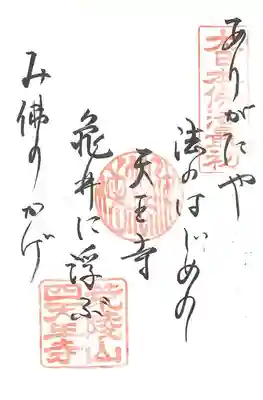 ありがたや
法のはじめの
天王寺
亀井に浮ぶ
み佛のかげ
大日本佛法最初
荒陵山
四天王寺